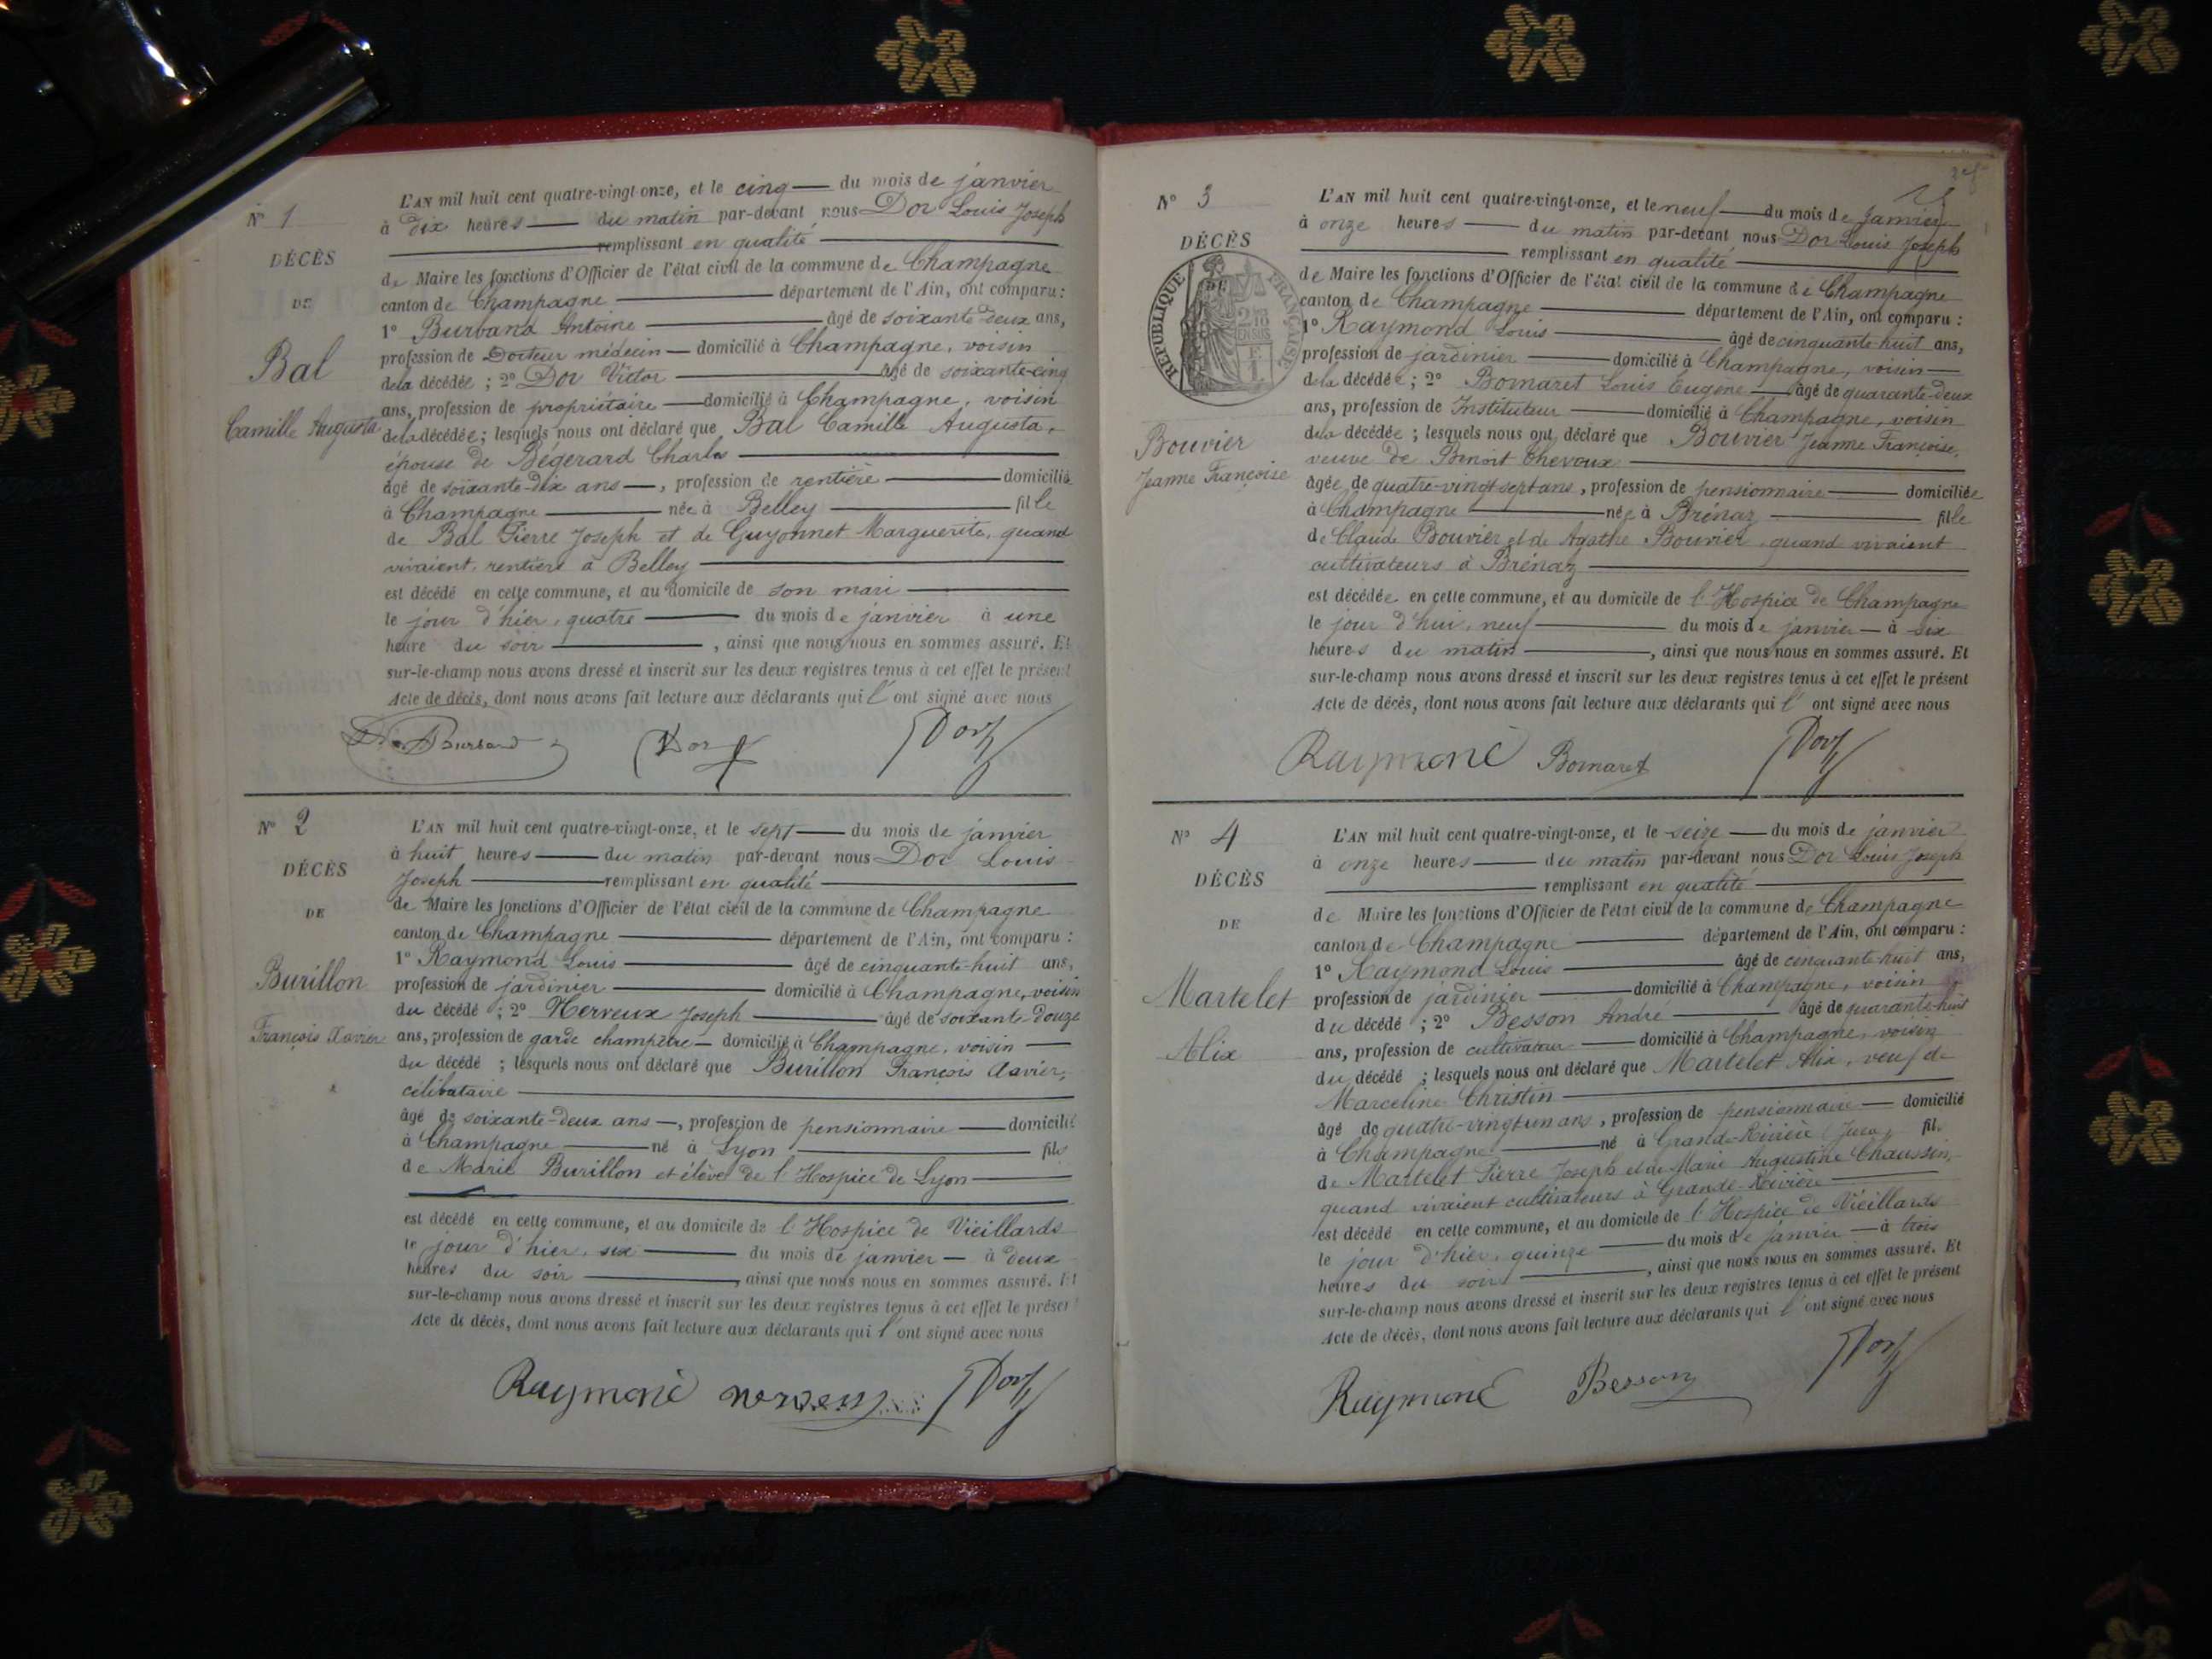 N° 1
DÉCÈS
DE
Bal
Camille Augusta
L'AN mil huit cent quatre-vingt-onze, et le cinq du mois de janvier
à dix heures du matin par-devant nous Dor Louis Joseph
remplissant en qualité
de Maire les fonctions d'Officier de l'état civil de la commune de Champagne
canton de Champagne département de l'Ain, ont comparu :
1° Burband Antoine âgé de soixante-deux ans,
profession de Docteur médecin domicilié à Champagne, voisin
de la décédée ; 2° Dor Victor âgé de soixante-cinq
ans, profession de propriétaire domicilié à Champagne, voisin
de la décédée ; lesquels nous ont déclaré que Bal Camille Augusta,
épouse de Bégerard Charles
âgé de soixante-dix ans, profession de rentière domicilié
à Champagne née à Belley fille
de Bal Pierre Joseph et de Guyonnet Marguerite, quand
vivaient, rentiers à Belley
est décédé en cette commune, et au domicile de son mari
le jour d'hier, quatre du mois de janvier à une
heure du soir, ainsi que nous nous en sommes assuré. Et
sur-le-champ nous avons dressé et inscrit sur les deux registres tenus à cet effet le présent
Acte de décès, dont nous avons fait lecture aux déclarants qui l'ont signé avec nous
Dor Dor
N° 2
DÉCÈS
DE
Burillon
François Xavier
L'AN mil huit cent quatre-vingt-onze, et le sept du mois de janvier
à huit heures du matin par-devant nous Dor Louis
Joseph remplissant en qualité
de Maire les fonctions d'Officier de l'état civil de la commune de Champagne
canton de Champagne département de l'Ain, ont comparu :
1° Raymond Louis âgé de cinquante-huit ans,
profession de jardinier domicilié à Champagne, voisin
du décédé ; 2° Herveux Joseph âgé de soixante-douze
ans, profession de garde champêtre domicilié à Champagne, voisin
du décédé ; lesquels nous ont déclaré que Burillon François Xavier,
célibataire
âgé de soixante-deux ans, profession de pensionnaire domicilié
à Champagne né à Lyon fils
de Marie Burillon et élève de l'Hospice de Lyon
est décédé en cette commune, et au domicile de l'Hospice de Vieillards
le jour d'hier, six du mois de janvier à deux
heures du soir, ainsi que nous nous en sommes assuré. Et
sur-le-champ nous avons dressé et inscrit sur les deux registres tenus à cet effet le présent
Acte de décès, dont nous avons fait lecture aux déclarants qui l'ont signé avec nous
Raymond Dor
N° 3
DÉCÈS
DE
RÉPUBLIQUE FRANÇAISE
Bouvier
Jeanne Françoise
L'AN mil huit cent quatre-vingt-onze, et le neuf du mois de janvier
à onze heures du matin par-devant nous Dor Louis Joseph
remplissant en qualité
de Maire les fonctions d'Officier de l'état civil de la commune de Champagne
canton de Champagne département de l'Ain, ont comparu :
1° Raymond Louis âgé de cinquante-huit ans,
profession de jardinier domicilié à Champagne, voisin
de la décédée ; 2° Bornaret Louis Eugène âgé de quarante-deux
ans, profession de Instituteur domicilié à Champagne, voisin
de la décédée ; lesquels nous ont déclaré que Bouvier Jeanne Françoise,
veuve de Benoit Chevoux
âgée de quatre-vingt-sept ans, profession de pensionnaire domiciliée
à Champagne née à Brénaz fille
de Claude Bouvier et de Agathe Bouvier quand vivaient
cultivateurs à Brénaz
est décédée en cette commune, et au domicile de l'Hospice de Champagne
le jour d'hui, neuf du mois de janvier à six
heures du matin, ainsi que nous nous en sommes assuré. Et
sur-le-champ nous avons dressé et inscrit sur les deux registres tenus à cet effet le présent
Acte de décès, dont nous avons fait lecture aux déclarants qui l'ont signé avec nous
Raymond Bornaret Dor
N° 4
DÉCÈS
DE
Martelet
Alix
L'AN mil huit cent quatre-vingt-onze, et le seize du mois de janvier
à onze heures du matin par-devant nous Dor Louis Joseph
remplissant en qualité
de Maire les fonctions d'Officier de l'état civil de la commune de Champagne
canton de Champagne département de l'Ain, ont comparu :
1° Raymond Louis âgé de cinquante-huit ans,
profession de jardinier domicilié à Champagne, voisin
du décédé ; 2° Besson André âgé de quarante-huit
ans, profession de cultivateur domicilié à Champagne, voisin
du décédé ; lesquels nous ont déclaré que Martelet Alix, veuf de
Marceline Christin
âgé de quatre-vingt-un ans, profession de pensionnaire domicilié
à Champagne né à Grande-Rivière (Jura) fils
de Martelet Pierre Joseph et de Marie Augustine Chaussin,
quand vivaient cultivateurs à Grande-Rivière
est décédé en cette commune, et au domicile de l'Hospice de Vieillards
le jour d'hier, quinze du mois de janvier à trois
heures du soir, ainsi que nous nous en sommes assuré. Et
sur-le-champ nous avons dressé et inscrit sur les deux registres tenus à cet effet le présent
Acte de décès, dont nous avons fait lecture aux déclarants qui l'ont signé avec nous
Raymond Besson Dor